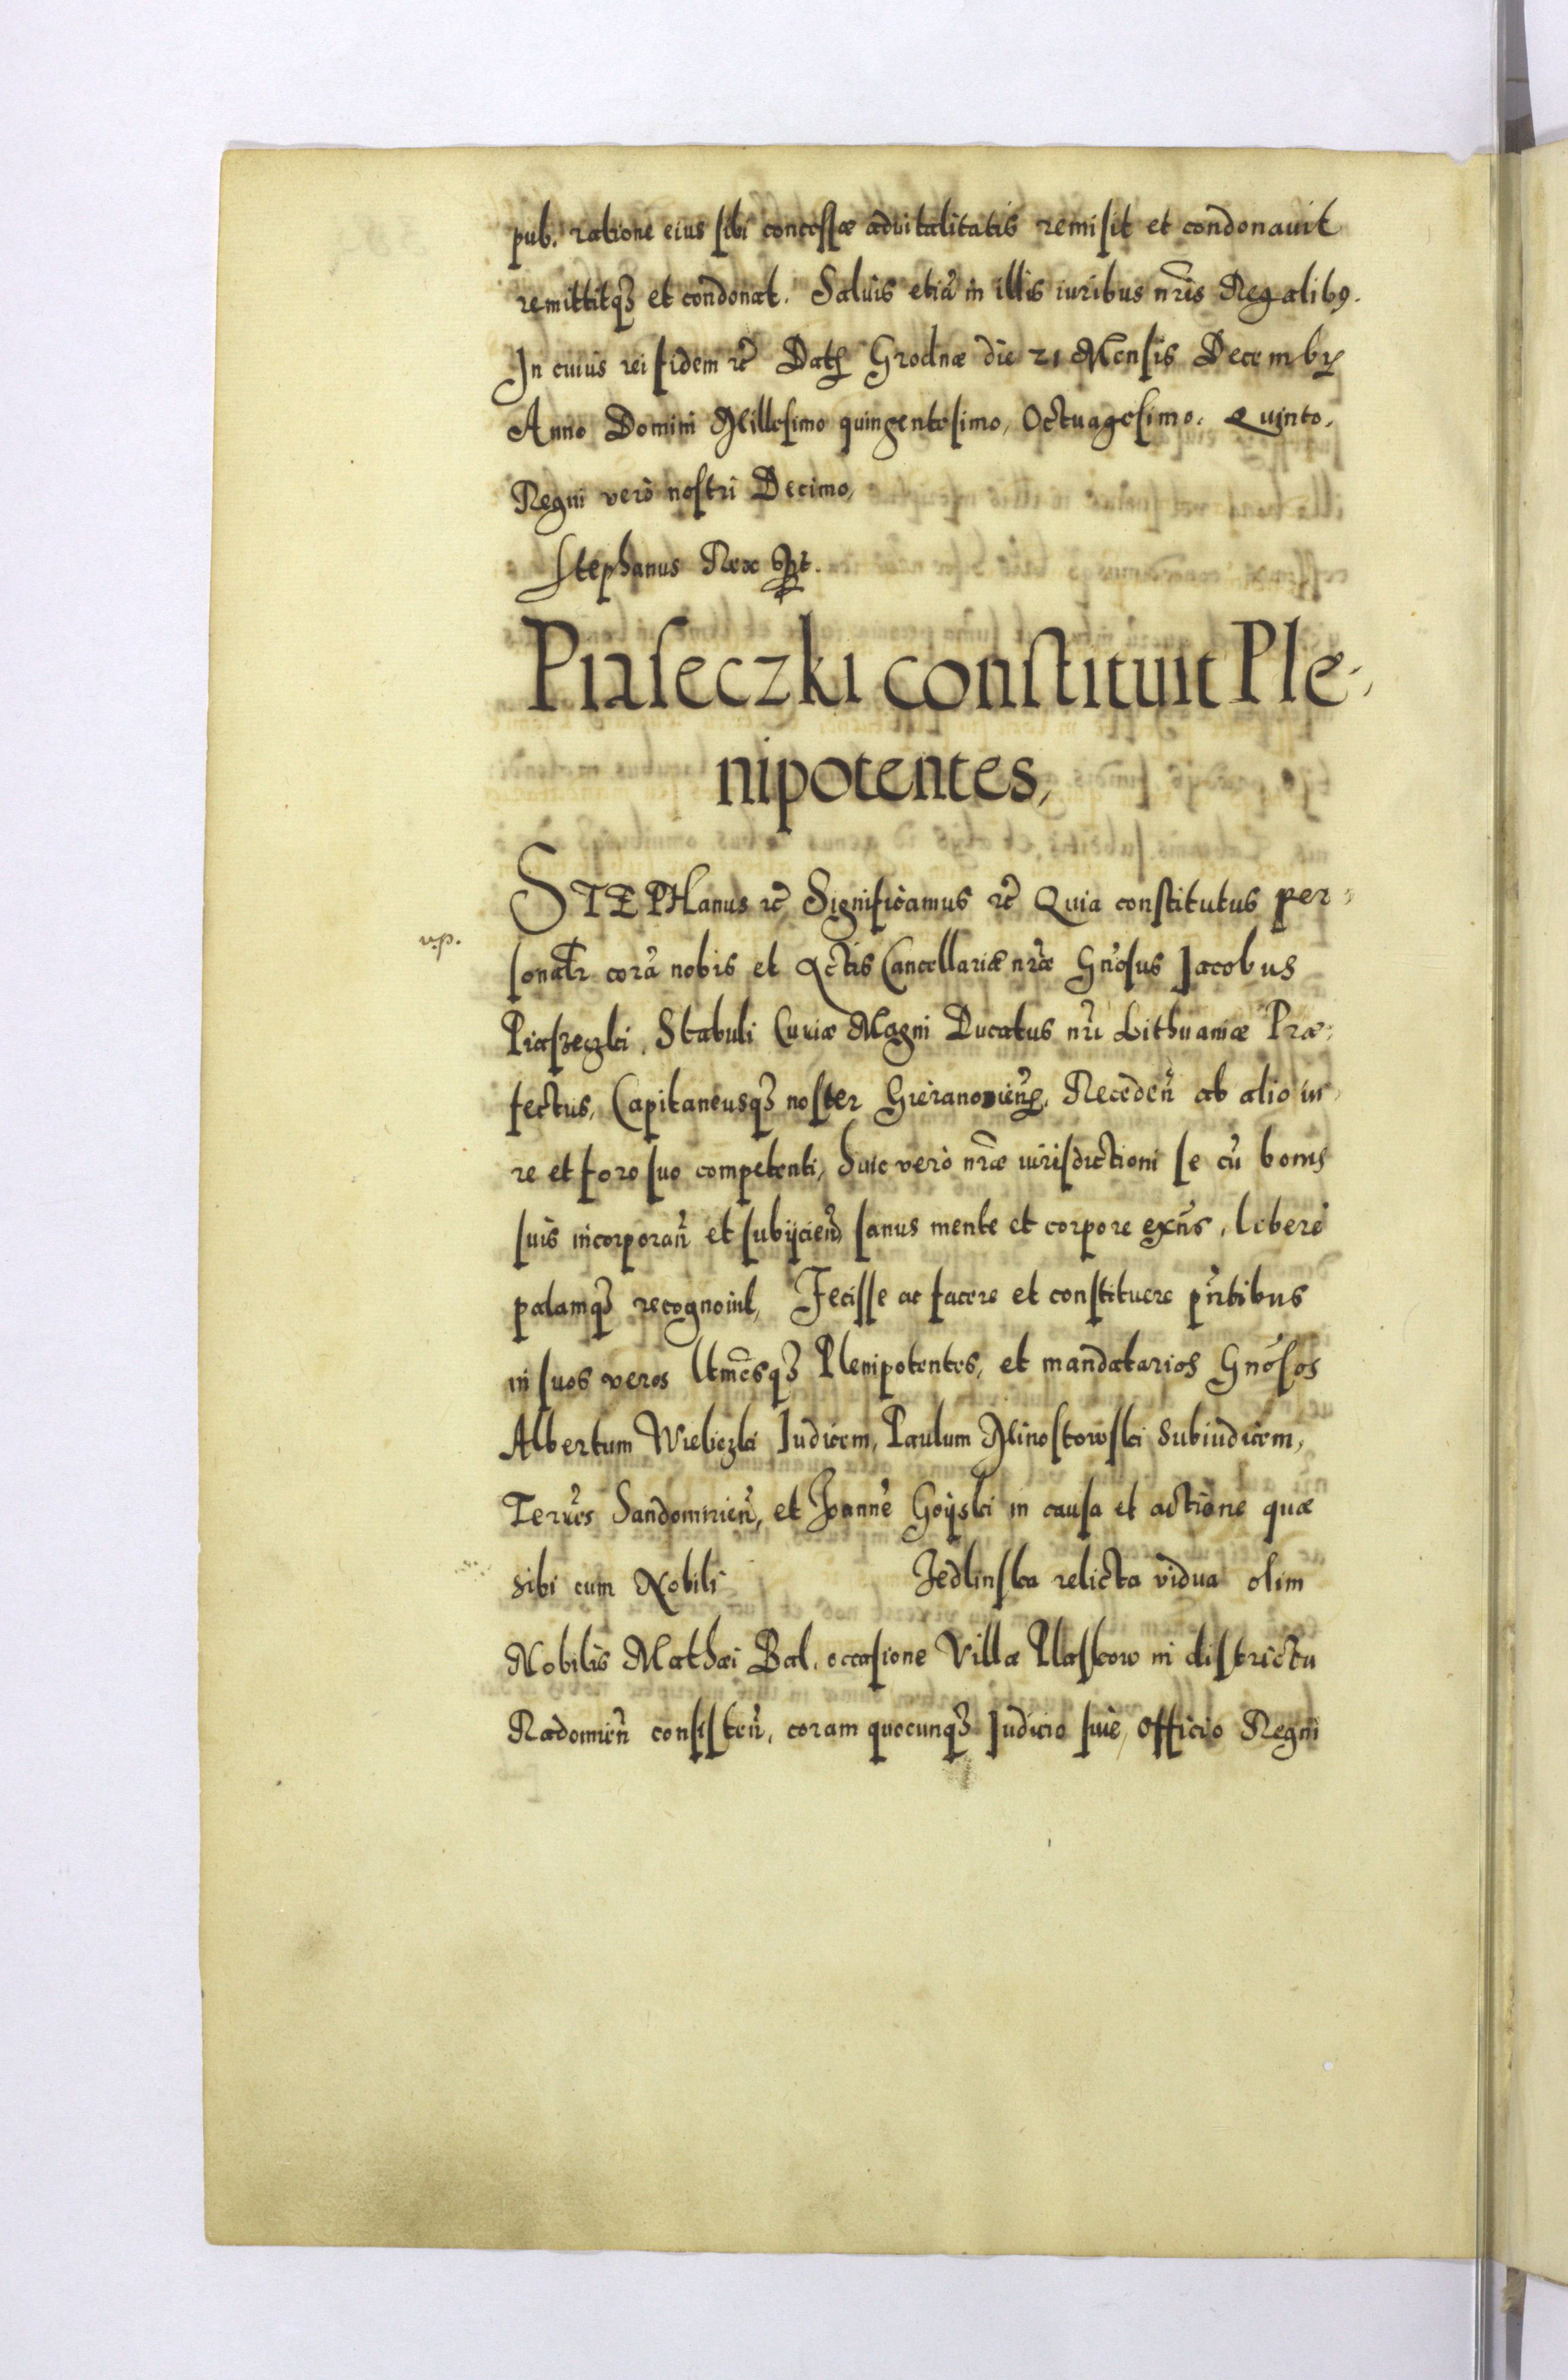 pub. ratione eius sibi concessæ aduitalitatis remisit et condonauit
remittitqꝫ et condonat. Saluis etiā in illis iuribus nr̃is Regalibꝰ.
In cuius rei fidem ꝛc̃ Datꝭ Grodnæ die 21 Mensis Decembꝭ
Anno Domini Millesimo quingentesimo, Octuagesimo. Quinto.
Regni verò nostri Decimo,
Stephanus Rex
Piaseczki constituit Ple-
nipotentes,
STEPHanus ꝛc̃ Significamus ꝛc̃ Quia constitutus per-
sonalr̃ corā nobis et Actis Cancellariæ nr̃æ Gn̄osus Jacobus
Piaszeczki, Stabuli Curiæ Magni Ducatus nr̃i Lithuaniæ Præ-
fectus, Capitaneusqꝫ noster Recedeñ ab alio iu-
re et foro suo competenti, huic verò nr̃æ iurisdictioni se cū bonis
suis incorporañ et subijcieñ, sanus mente et corpore exñs, liberè
palamqꝫ recognouit, Fecisse ac facere et constituere pñtibus
in suos veros ltm̃osqꝫ Plenipotentes, et mandatarios Gn̄osos
Albertum Wiebiczki Judicem, Paulum Minostowski Subiudicem,
Terr̃es Sandomirieñ, et Joannē Goÿski in causa et actione quæ
sibi cum Nobili Jedlinska relicta vidua olim
Nobilis Mathæi Bal, occasione Villæ Plaskow in districtu
Radomieñ consisteñ, coram quocunqꝫ Judicio siue, Officio Regni